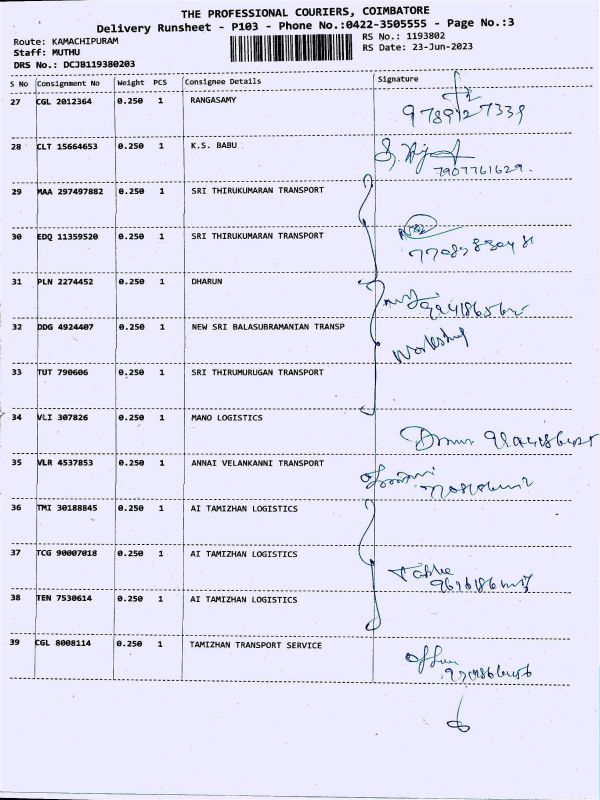 THE PROFESSIONAL COURIERS, COIMBATORE
Delivery Runsheet - P103 - Phone No.:0422-3505555 - Page No.:3
Route: KAMACHIPURAM
Staff: MUTHU
DRS No.: DCJB119380203
RS No.: 1193802
RS Date: 23-Jun-2023
S No Consignment No Weight PCS Consignee Details Signature
27 CGL 2012364 0.250 1 RANGASAMY
28 CLT 15664653 0.250 1 K.S. BABU
7907761629.
29 MAA 297497882 0.250 1 SRI THIRUKUMARAN TRANSPORT
30 EDQ 11359520 0.250 1 SRI THIRUKUMARAN TRANSPORT
31 PLN 2274452 0.250 1 DHARUN
32 DDG 4924407 0.250 1 NEW SRI BALASUBRAMANIAN TRANSP
33 TUT 790606 0.250 1 SRI THIRUMURUGAN TRANSPORT
34 VLI 307826 0.250 1 MANO LOGISTICS
35 VLR 4537853 0.250 1 ANNAI VELANKANNI TRANSPORT
36 TMI 30188845 0.250 1 AI TAMIZHAN LOGISTICS
37 TCG 90007018 0.250 1 AI TAMIZHAN LOGISTICS
38 TEN 7530614 0.250 1 AI TAMIZHAN LOGISTICS
39 CGL 8008114 0.250 1 TAMIZHAN TRANSPORT SERVICE